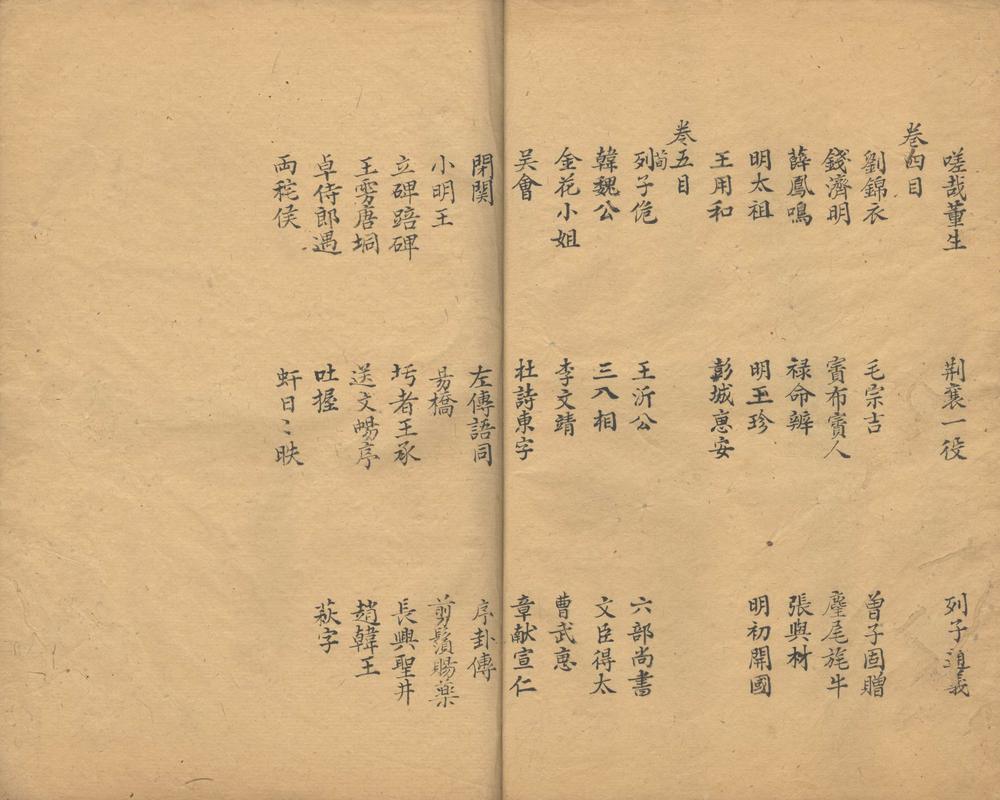 嗟哉董生　荆襄一役　列子道義
卷四目
劉錦衣　毛宗吉　曾子固贈
錢濟明　賨布賨人　麈尾旄牛
薛鳳鳴　禄命辨　張與材
明太祖　明玉珍　明初開國
王用和　彭城惠安
卷五目
列子佹　王沂公　六部尚書
韓魏公　三入相　文臣得太
金花小姐　李文靖　曹武惠
吴會　杜詩東字　章献宣仁
閉関　左傳語同　序卦傳
小明王　昜橋　剪鬚賜藥
立碑踣碑　圬者王承　長興聖井
王雱唐坰　送文暢序　趙韓王
卓侍郎遇　吐握　萩字
両秺侯　虷日〻昳